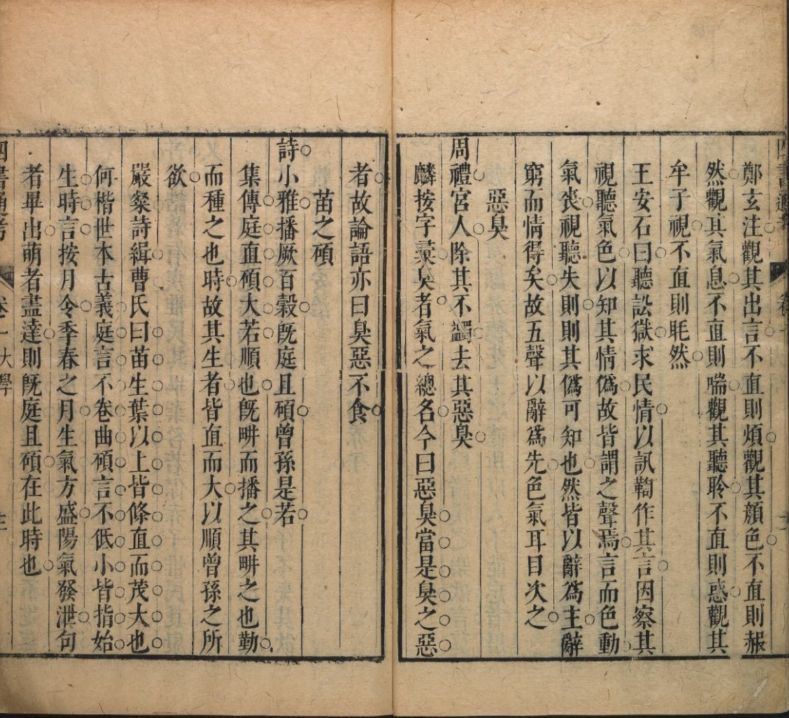 鄭玄注觀其出言不直則煩觀其顔色不直則赧
然觀其氣息不直則喘觀其聽聆不直則惑觀其
牟子視不直則眊然
王安石曰聽訟獄求民情以訊鞫作其言因察其
視聽氣色以知其情僞故皆謂之聲焉言而色動
氣喪視聽失則則其僞可知也然皆以辭爲主辭
窮而情得矣故五聲以辭爲先色氣耳目次之
惡臭
周禮宮人除其不蠲去其惡臭
麟按字彙臭者氣之總名今曰惡臭當是臭之惡
四書通考 卷一
者故論語亦曰臭惡不食
苗之碩
詩小雅播厥百穀旣庭且碩曾孫是若
集傳庭直碩大若順也旣畊而播之其畊之也勤
而種之也時故其生者皆直而大以順曾孫之所
欲
嚴粲詩緝曹氏曰苗生葉以上皆條直而茂大也
何楷世本古義庭言不卷曲碩言不低小皆指始
生時言按月令季春之月生氣方盛陽氣發泄句
者畢出萌者盡達則旣庭且碩在此時也
四書通考 卷一大學